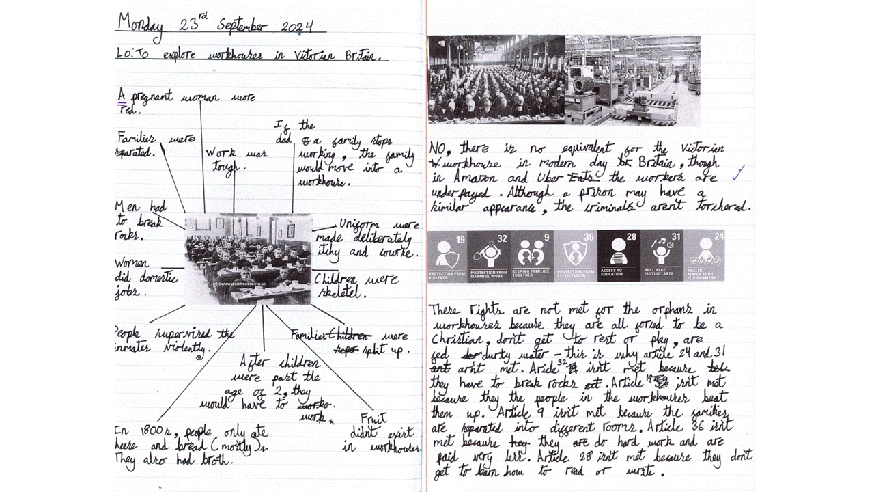 Monday 23rd September 2024
LO: To explore workhouses in Victorian Britain.
A pregnant woman wore
red.
Families were
separated.
Work was
tough.
If the
dad of a family stops
working, the family
would move into a
workhouse.
Men had
to break
rocks.
Uniform were
made deliberately
itchy and
Women
did domestic
jobs.
Children were
skeletel.
People supervised the
inmates violently.
Families Children were
split up.
After children
were past the
age of 2, they
would have to works
work.
In 1800s, people only ate
cheese and bread (mostly).
They also had broth.
Fruit
didn't exist
in workhouses
NO, there is no equivalent for the Victorian
workhouse in modern day Britain, though
in Amazon and Uber Eats the workers are
under payed. Although a prison may have a
similar appearance, the criminals arent torchered.
19
32
9
36
28
31
24
ACCESS TO
EDUCATION
These rights are not met for the orphans in
workhouses because they are all forced to be a
Christian, don't get to rest or play, are
fed durty water - this is why article 24 and 31
arnt met. Aricle 32 isnt met because
they have to break rocks. Article 19 isnt met
because they the people in the workhouses beat
them up. Article 9 isnt met because the families
are separated into different rooms. Article 36 isnt
met because they they are do hard work and are
paid very less. Article 28 isnt met because they dont
get to learn how to read or write.